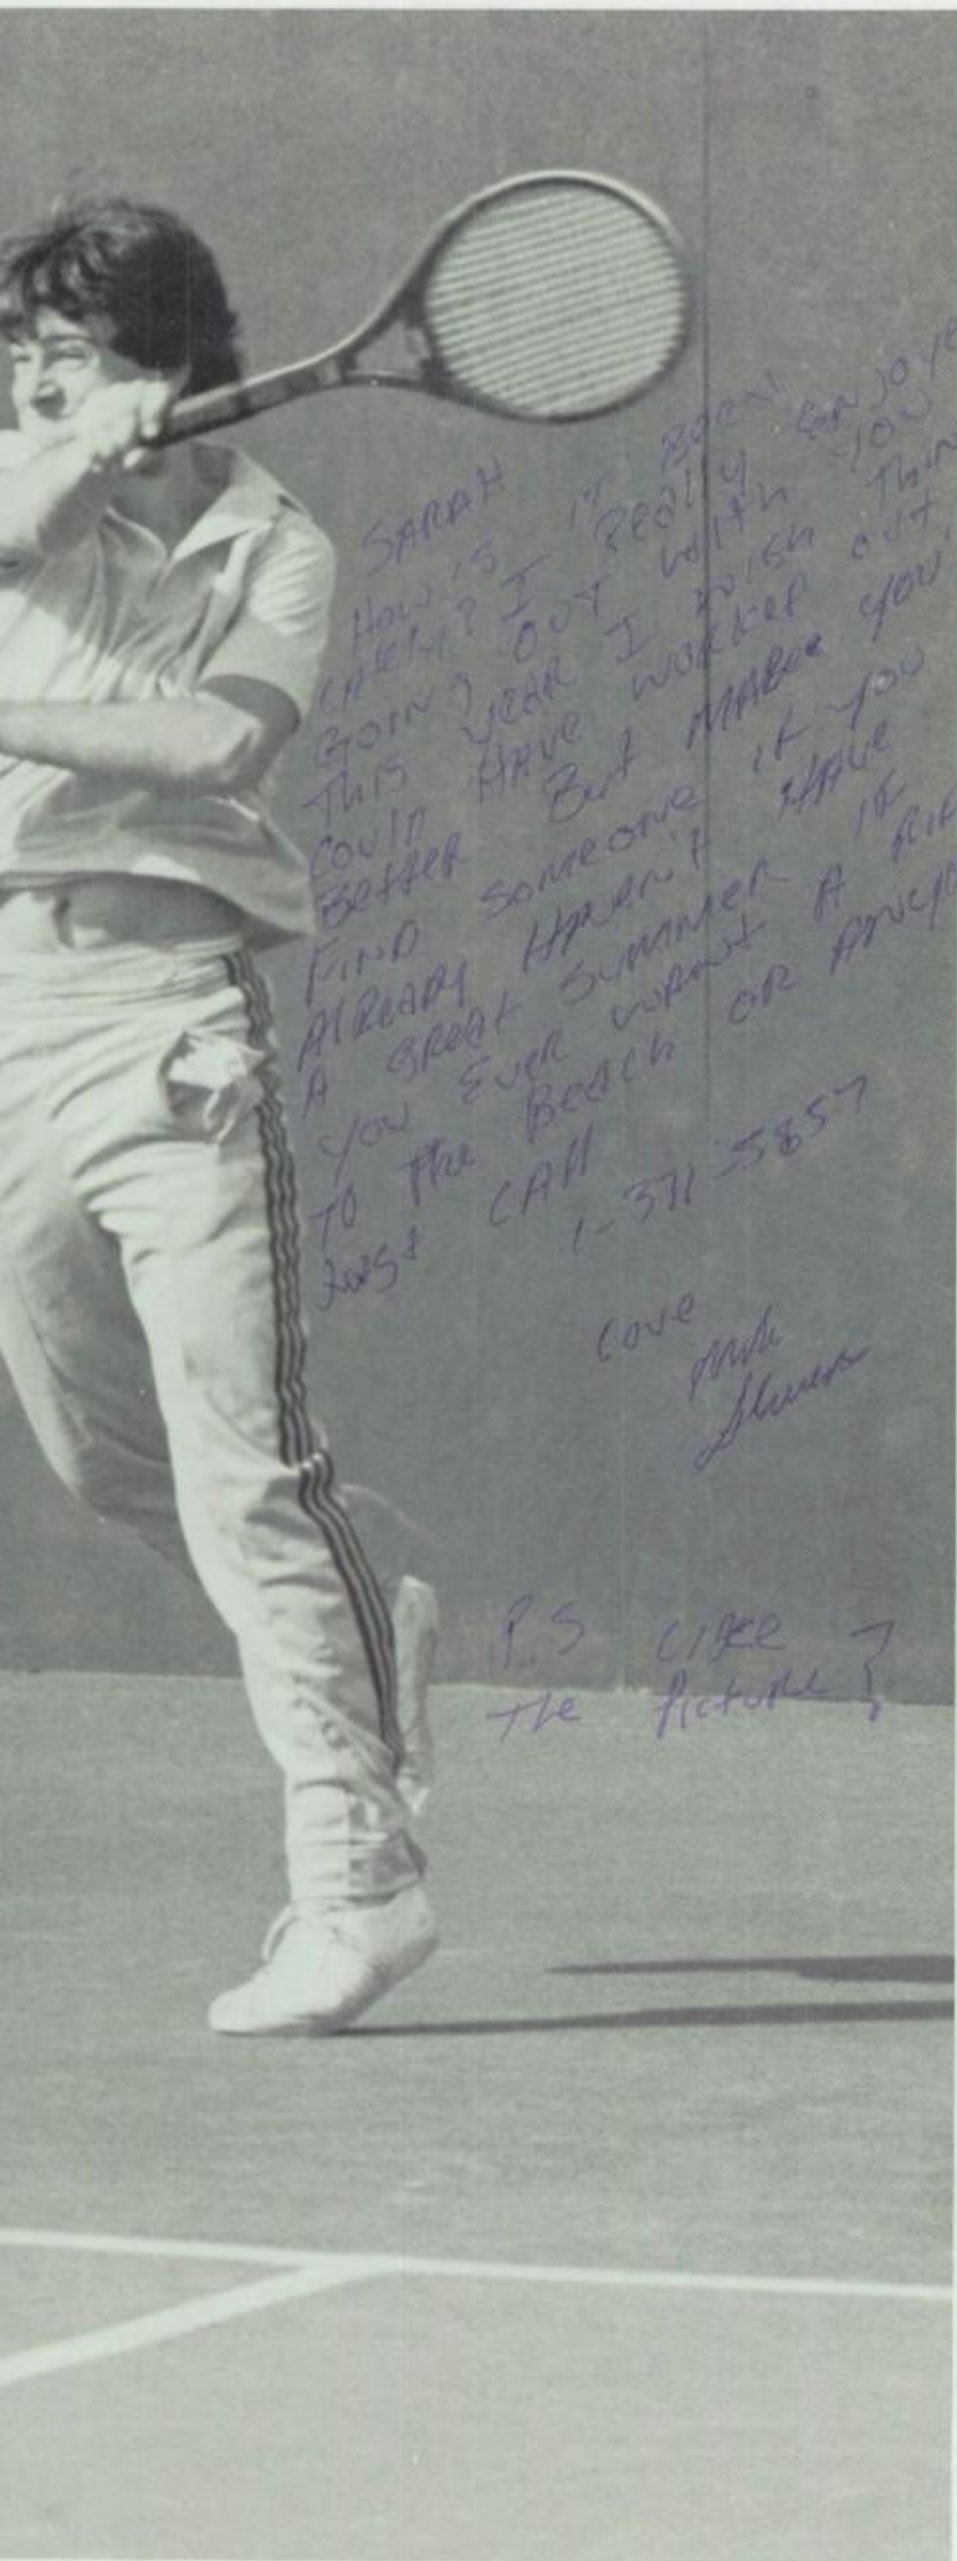 SARAH
How is it BORN
LAtEly? I REAlly ENJOYE
GOING OUT With YOU
This yeAR I wish Thin
COULD HAVE WORKED OUT
BetteR But MABee YOU
FIND SOMEONE if you
AlReady HAVEN't HAVE
A GREAt SUMMER IF
you EVER WANt A RID
TO The BeACh OR ANY
Just CAll
1-371-5857
LOVE
P.S Like
The Picture?